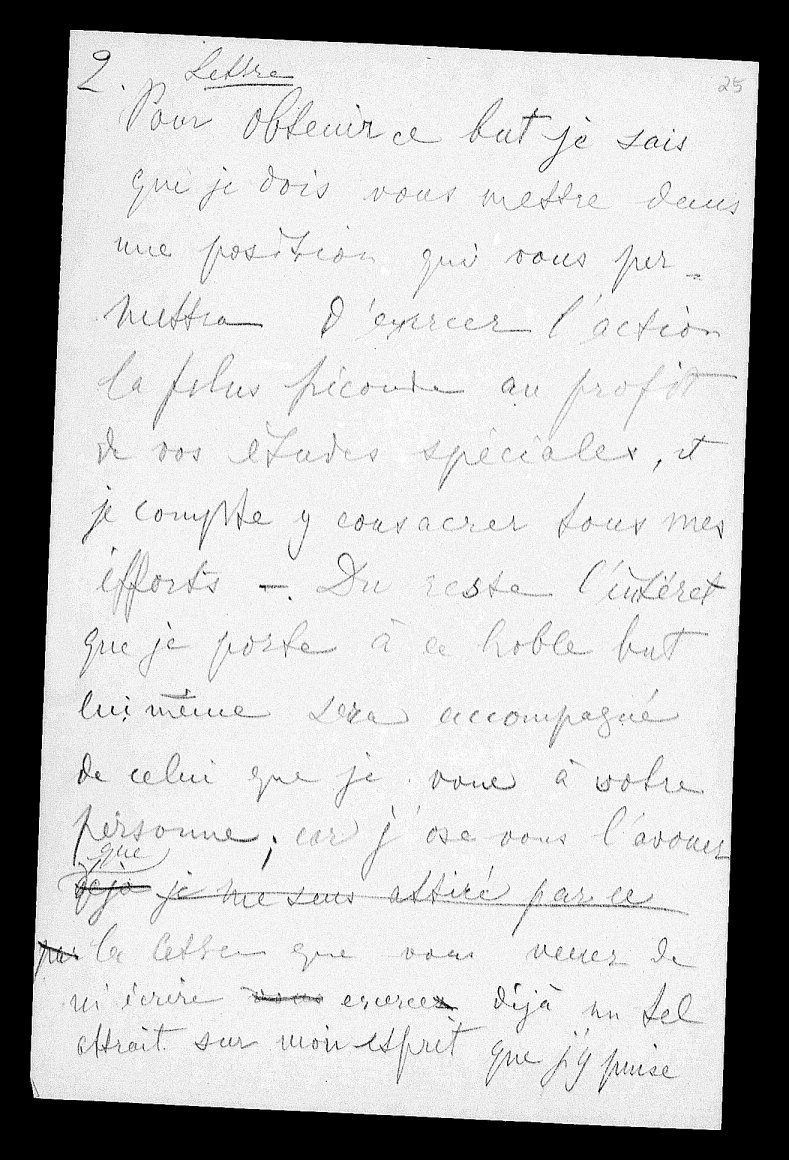 2. Lettre
25
Pour obtenir ce but je sais
que je dois vous mettre dans
une position qui vous per-
mettra d'exercer l'action
la plus féconde au profit
de vos études spéciales, et
je compte y consacrer tous mes
efforts -. Du reste l'intéret
que je porte à ce noble but
lui même sera accompagné
de celui que je voue à votre
personne; car j'ose vous l'avouer
que
déja je me sens attiré par ce
par la lettre que vous venez de
m'écrire vous exercez déjà un tel
attrait sur mon esprit que j'y puise